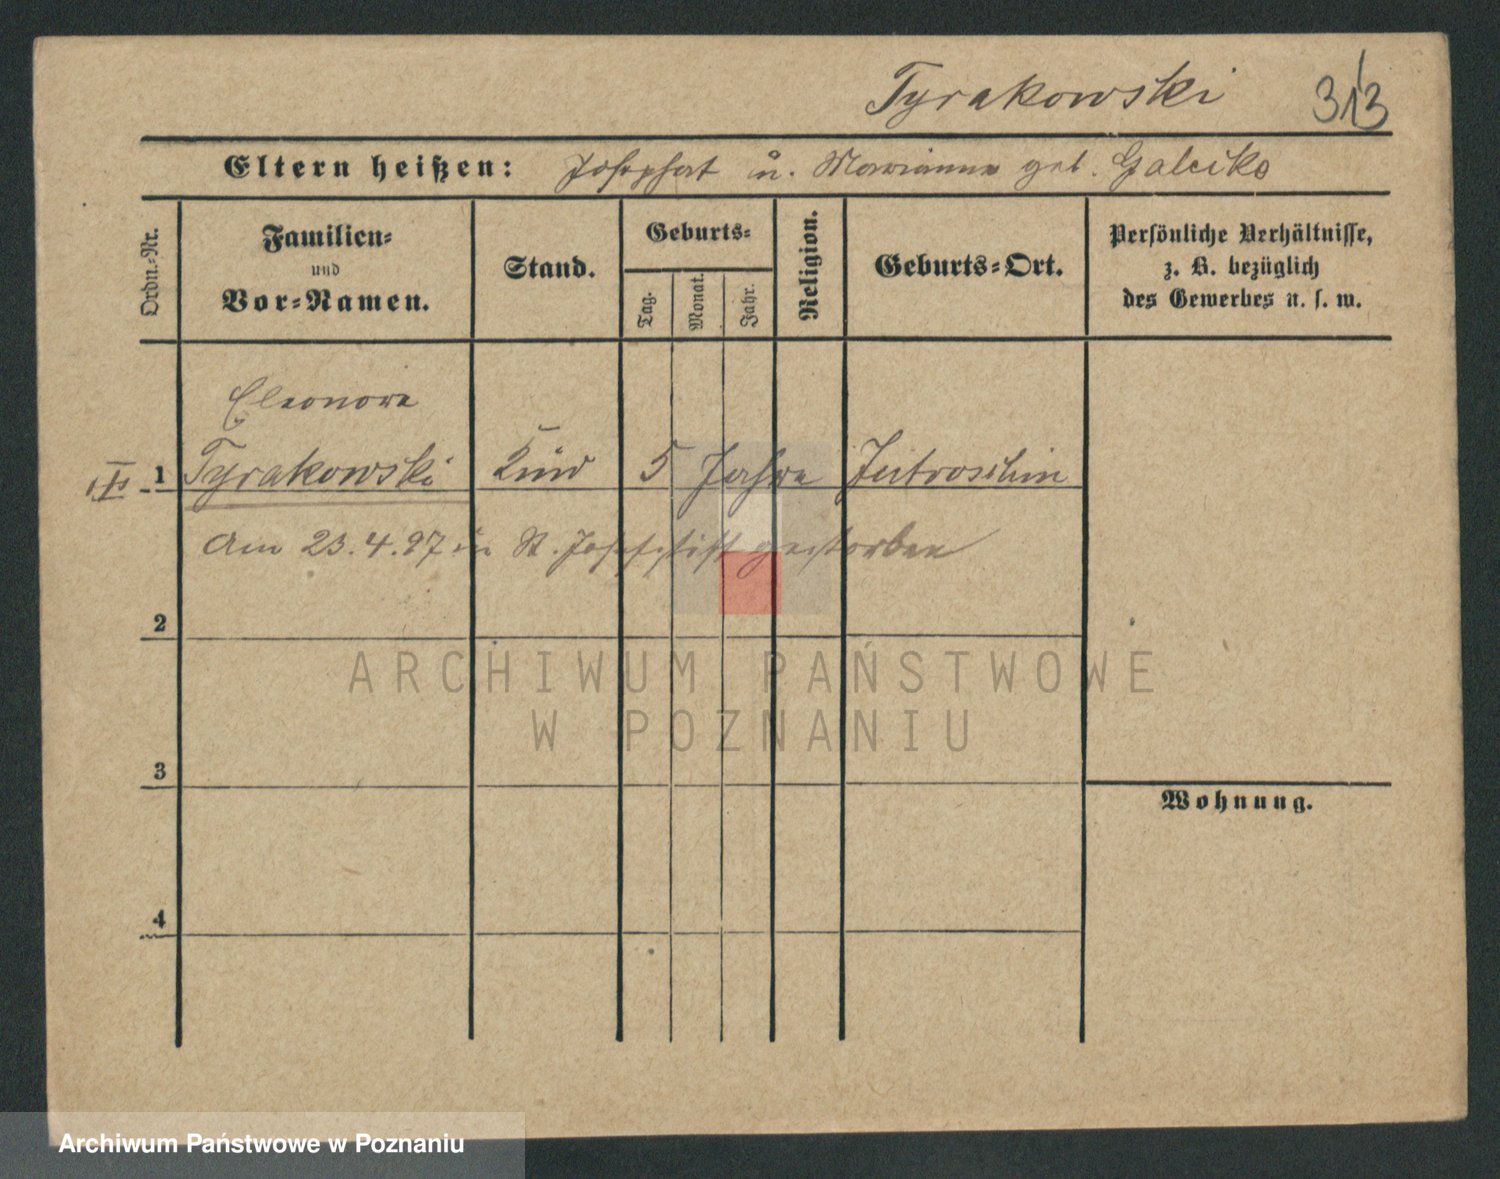 Tyrakowski 313
Eltern heißen: Josephat u. Marianna geb. Galeika
Ordn.-Nr.
Familien-
und
Vor-Namen.
Stand.
Geburts-
Tag.
Monat.
Jahr.
Religion.
Geburts-Ort.
Persönliche Verhältnisse,
z. B. bezüglich
des Gewerbes u. s. w.
Eleonora
1 Tyrakowski Kind 5 Jahre Jutroschin
Am 23.4.97 in St. Josephstift gestorben
2
3
4
Wohnung.
ARCHIWUM PAŃSTWOWE
W POZNANIU
Archiwum Państwowe w Poznaniu